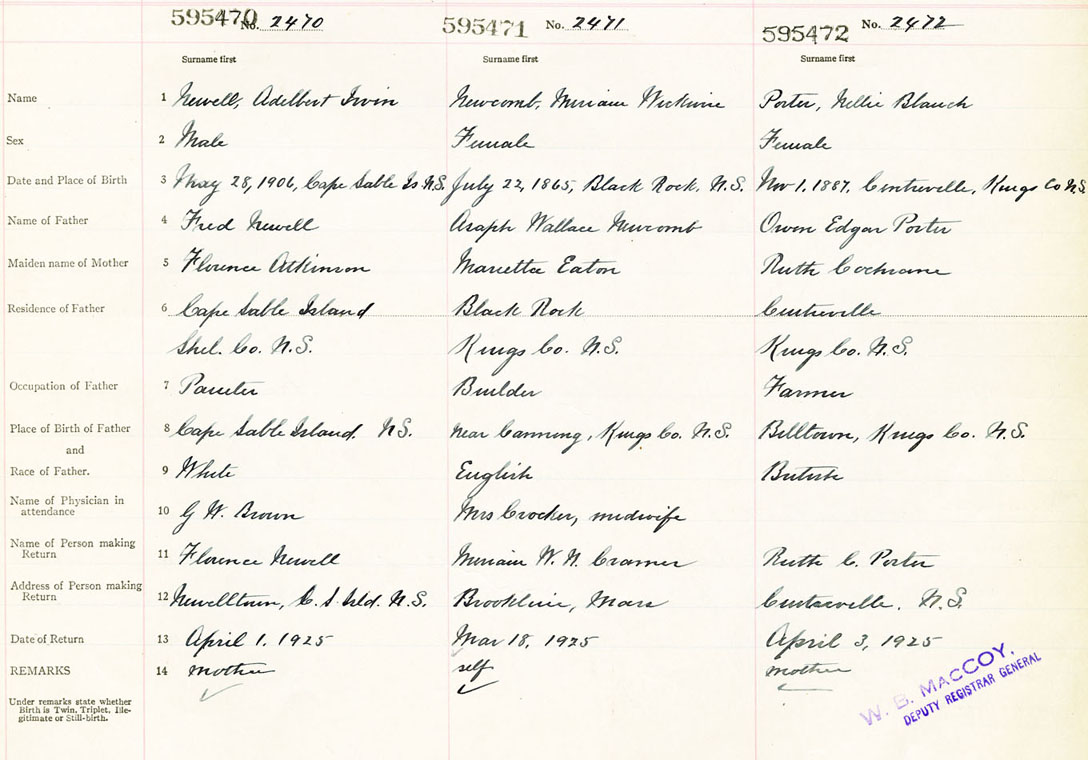 595470 No. 2470 595471 No. 2471 595472 No. 2472
Surname first Surname first Surname first
Name 1 Newell, Adelbert Irvin Newcomb, Miriam Wickwire Porter, Nellie Blanch
Sex 2 Male Female Female
Date and Place of Birth 3 May 28, 1906, Cape Sable Is N.S. July 22, 1865, Black Rock, N.S. Nov 1. 1887. Centreville, Kings Co N.S.
Name of Father 4 Fred Newell Asaph Wallace Newcomb Owen Edgar Porter
Maiden name of Mother 5 Florence Atkinson Marietta Eaton Ruth Cochrane
Residence of Father 6 Cape Sable Island Black Rock Centreville
Shel. Co. N.S. Kings Co. N.S. Kings Co. N.S.
Occupation of Father 7 Painter Builder Farmer
Place of Birth of Father 8 Cape Sable Island. N.S. near Canning, Kings Co. N.S. Billtown, Kings Co. N.S.
and
Race of Father. 9 White English British
Name of Physician in
attendance 10 G W. Brown Mrs Crocker, midwife
Name of Person making
Return 11 Florence Newell Miriam W. N. Cramer Ruth C. Porter
Address of Person making
Return 12 Newelltown, C. S. Isld. N.S. Brookline, Mass Centreville. N.S.
Date of Return 13 April 1. 1925 Mar 18, 1925 April 3, 1925
REMARKS 14 mother self mother
Under remarks state whether
Birth is Twin, Triplet, Ille-
gitimate or Still-birth.
W. B. MACCOY,
DEPUTY REGISTRAR GENERAL